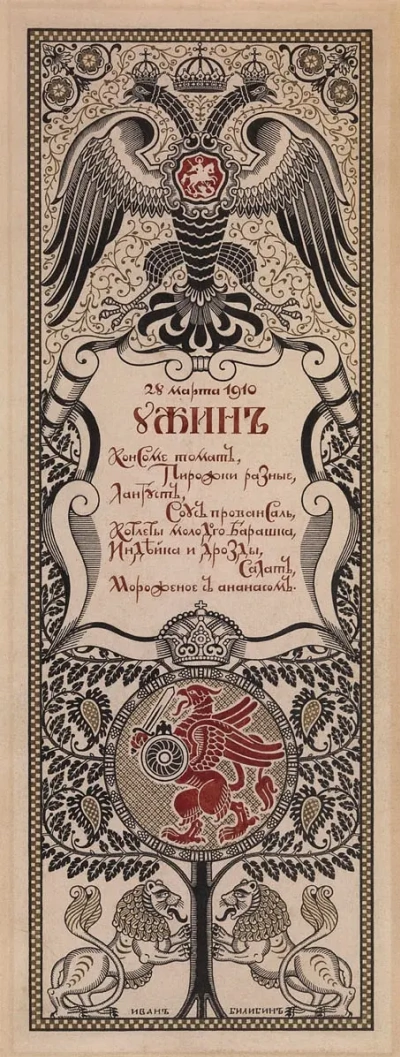 28 марта 1910
УЖИНЪ
Консоме томатъ,
Пирожки разные,
Лангустъ,
Соусъ провансаль,
Котлеты молодого барашка,
Индѣйка и дрозды,
Салатъ,
Мороженое съ ананасомъ.
ИВАНЪ БИЛИБИНЪ